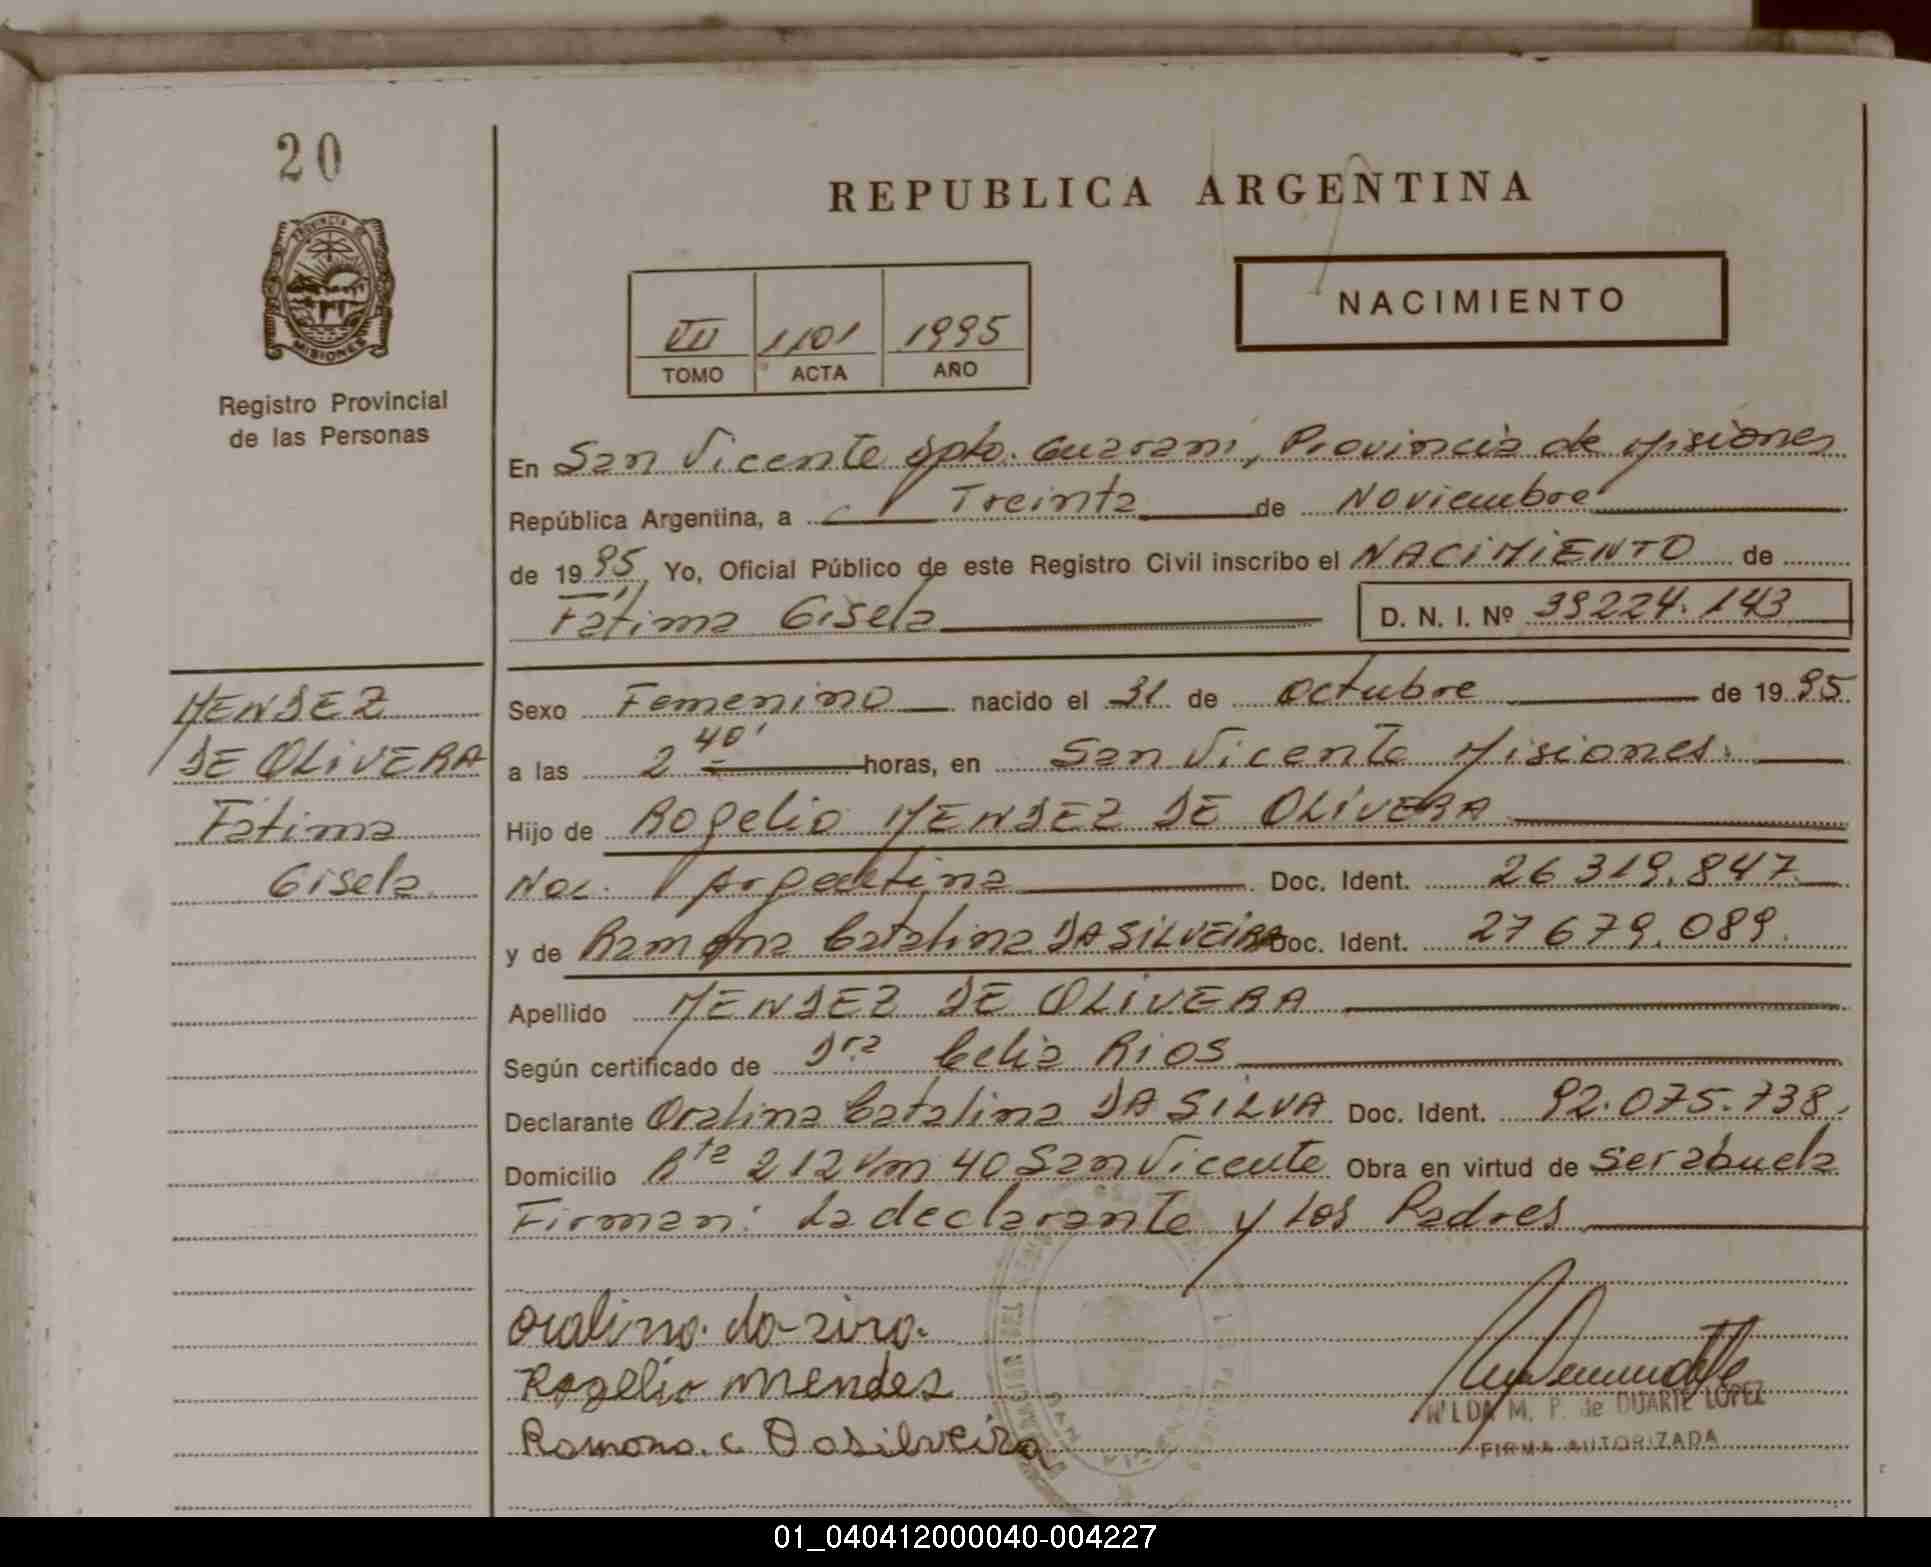 20
PROVINCIA DE
MISIONES
Registro Provincial
de las Personas
REPUBLICA ARGENTINA
NACIMIENTO
VII 1101 1995
TOMO ACTA AÑO
En San Vicente Dpto. Guaraní, Provincia de Misiones
República Argentina, a Treinta de Noviembre
de 1995, Yo, Oficial Público de este Registro Civil inscribo el NACIMIENTO de
Fátima Gisela D. N. I. Nº 39224.143
MENDEZ
DE OLIVERA
Fatima
Gisela
Sexo Femenino nacido el 31 de Octubre de 1995
a las 2 40' horas, en San Vicente Misiones.
Hijo de Rogelio MENDEZ DE OLIVERA
Nac. Argentina Doc. Ident. 26 319.847
y de Ramona Catalina DA SILVEIRA Doc. Ident. 27 679.089.
Apellido MENDEZ DE OLIVERA
Según certificado de Dra Celia Rios
Declarante Oralina Catalina DA SILVA Doc. Ident. 92.075.738.
Domicilio Rta 212 Km 40 San Vicente Obra en virtud de ser abuela
Firman: La declarante y los Padres
oralina da
Rogelio Mendes
Ramona. c Dasilveira
WILDA M. P. de DUARTE LOPEZ
FIRMA AUTORIZADA
01_040412000040-004227